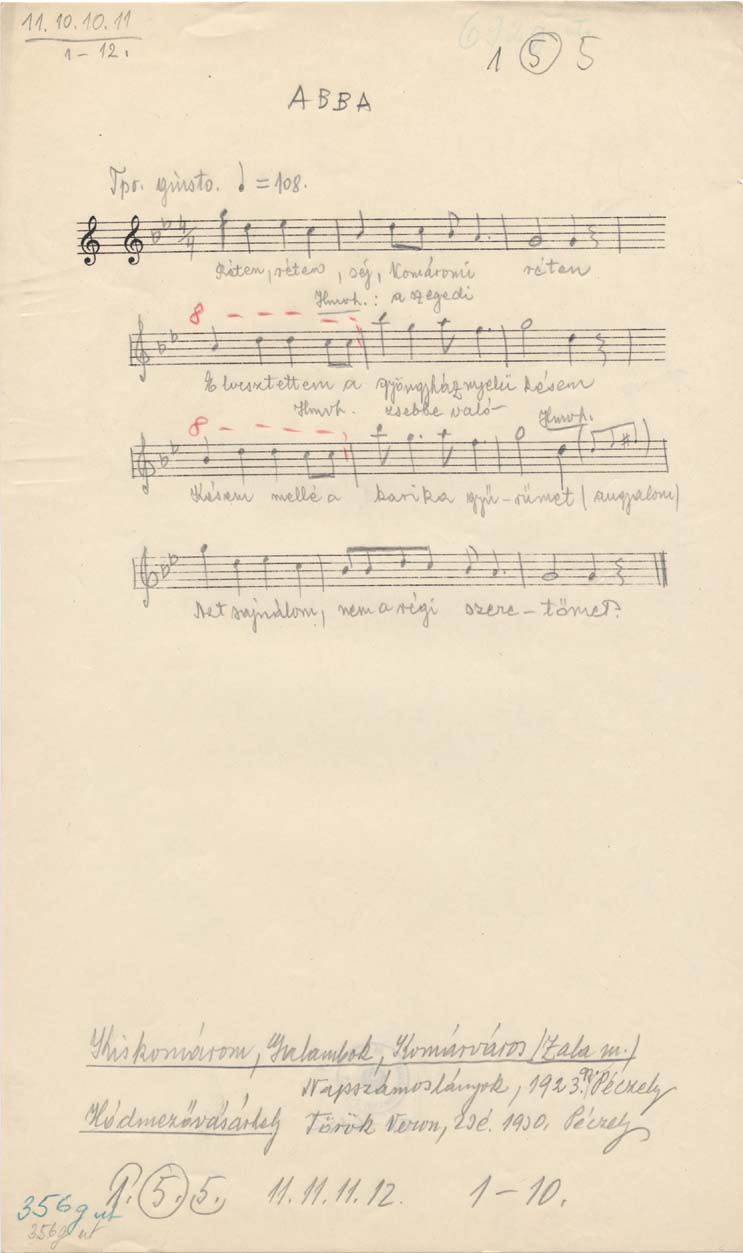 11. 10. 10. 11
1 – 12.
1 5 5
ABBA
Tpo. giusto. ♩ = 108.
Réten, réten, séj, Komáromi réten
Hmvh.: a szegedi
8
Elvesztettem a gyöngyháznyelű késem
Hmvh. zsebbe való –
8
Hmvh.
Késem mellé a karika gyű – rűmet (angyalom)
Azt sajnálom, nem a régi szere – tőmet?
Kiskomárom, Galambok, Komárváros (Zala m.)
Napszámoslányok, 1923. Péczely
Hódmezővásárhely Török Veron, 23é. 1930. Péczely
1. 5. 5. 11. 11. 11. 12. 1 – 10.
356g ut
356g ut